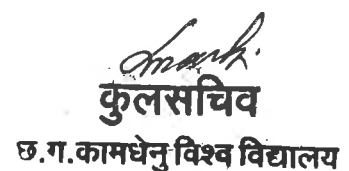 कुलसचिव
छ.ग.कामधेनु विश्व विद्यालय